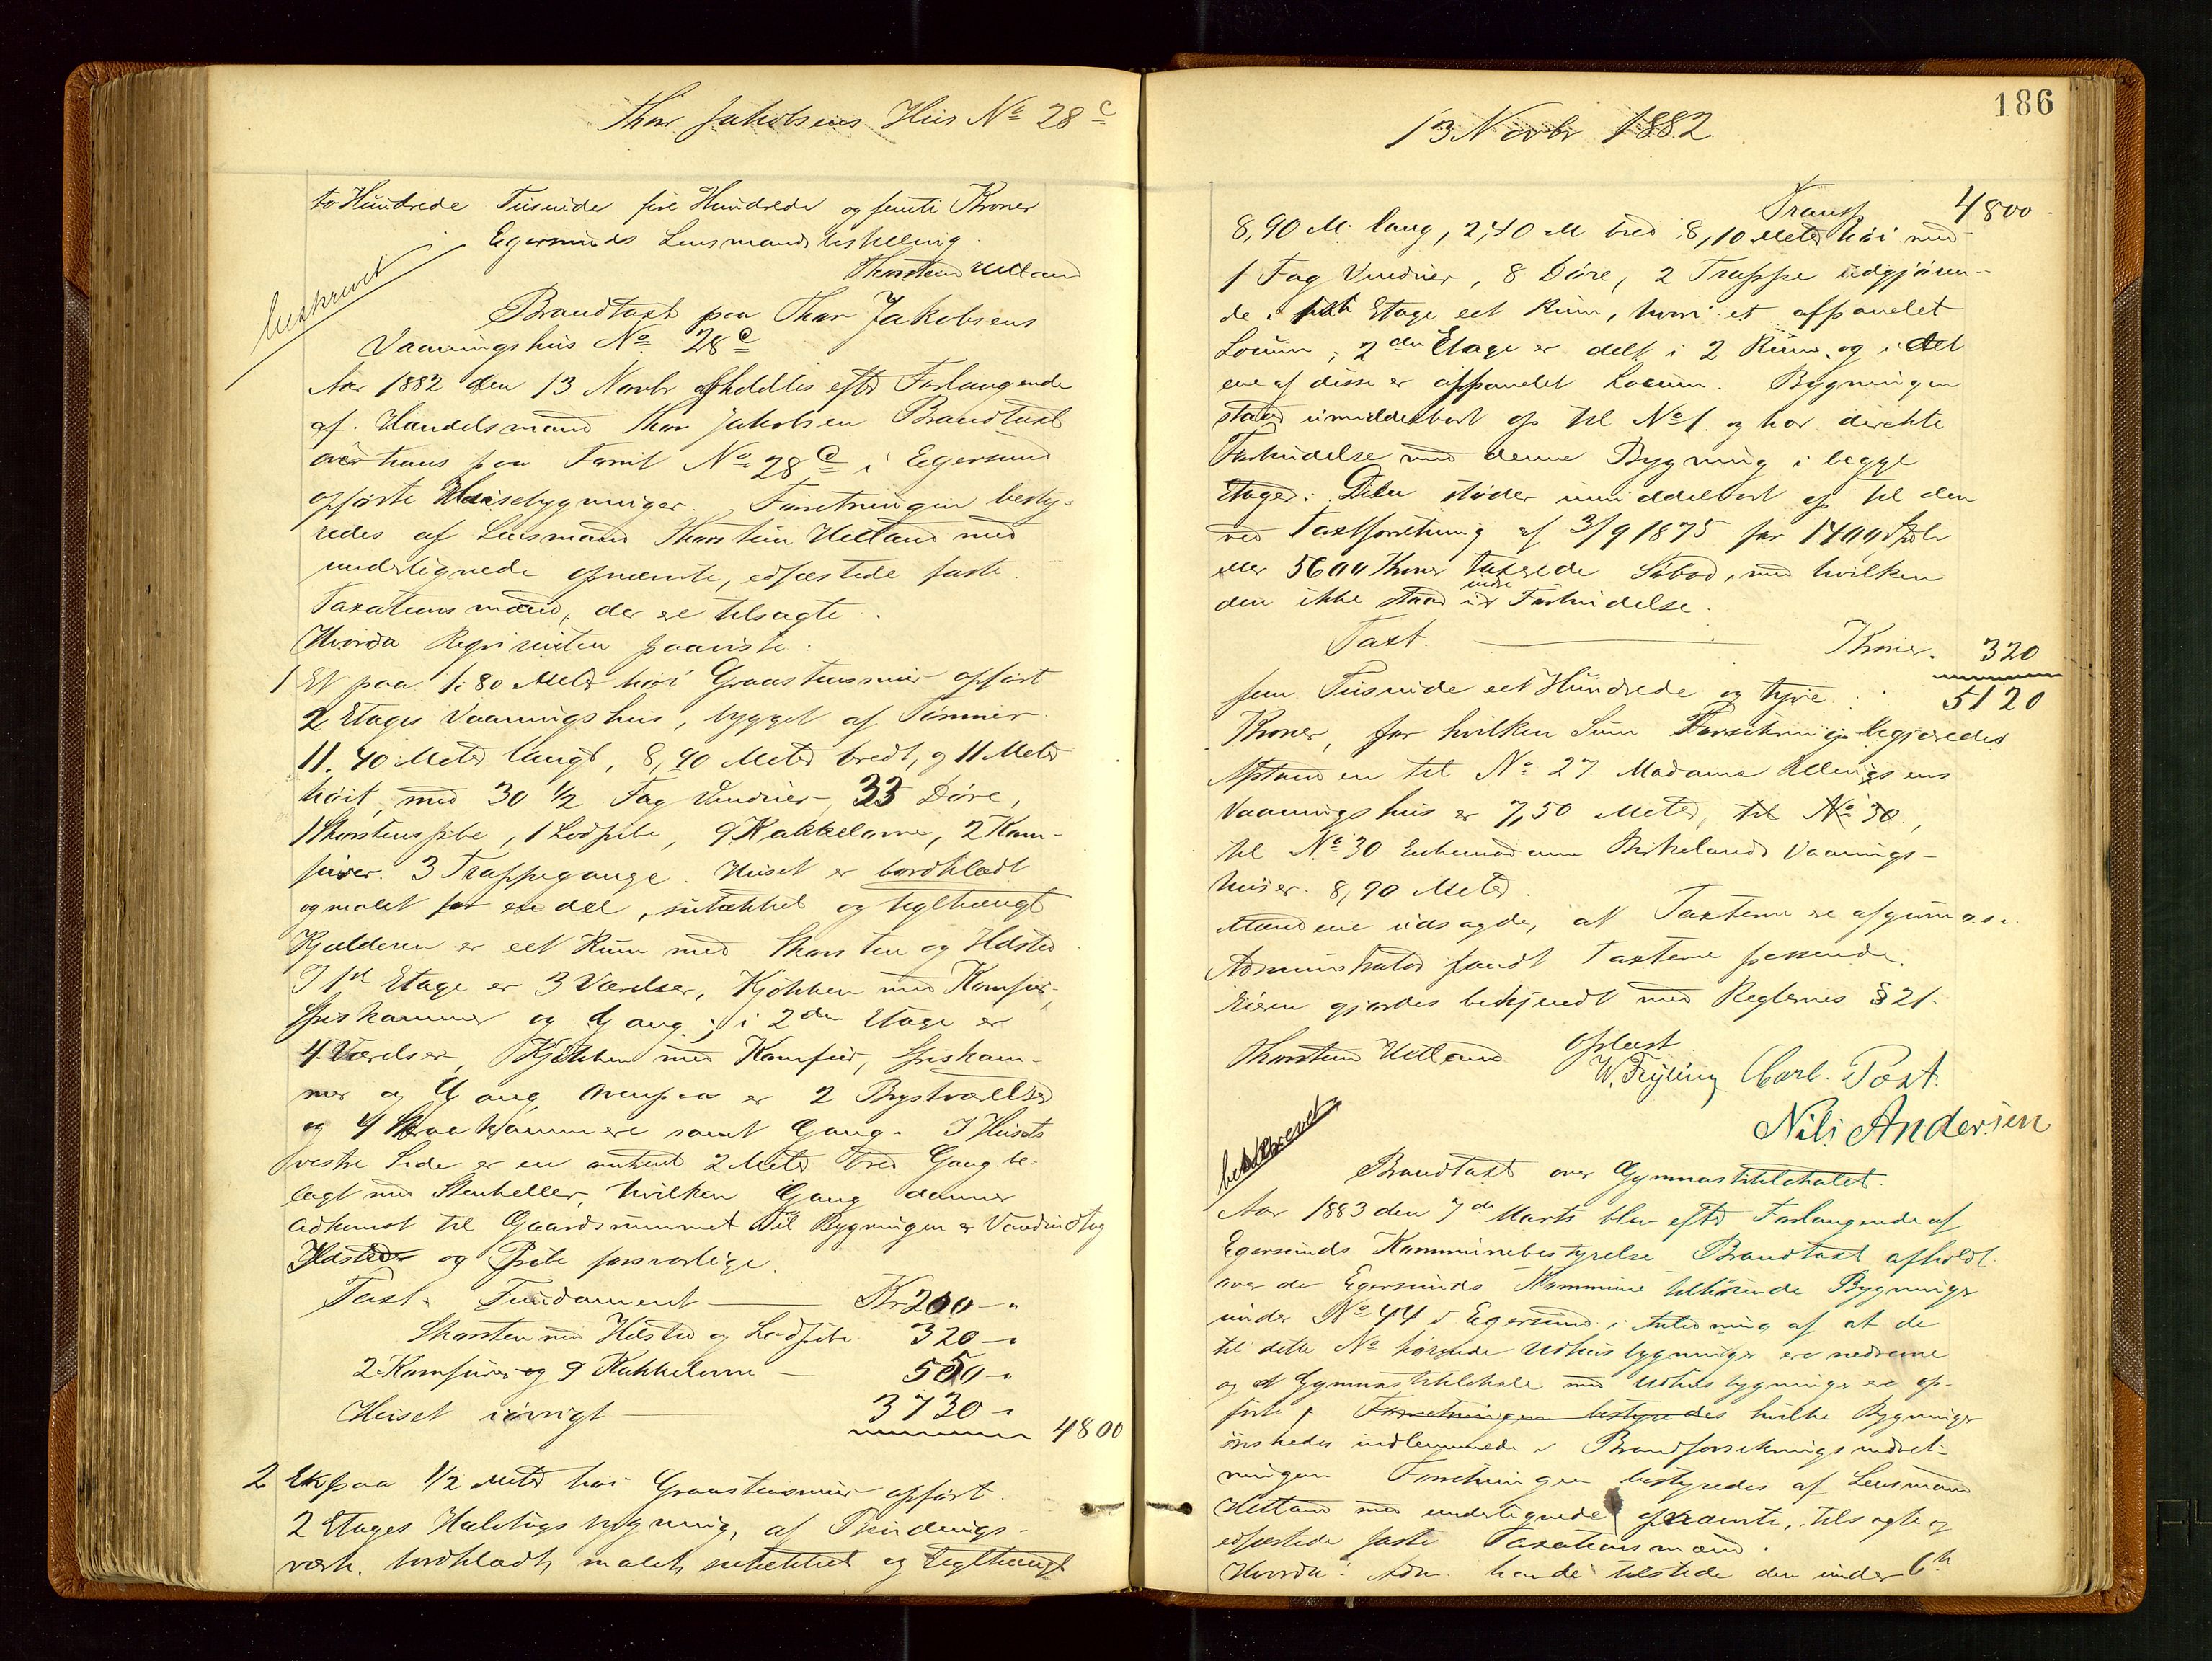 Thor Jakobsens Hus No 28 c
to Hundrede Tusinde fire Hundrede og femti Kroner
Egersunds Lensmandsbestilling
Thorstein Hetland
beskrevet
Brandtaxt paa Thor Jakobsens
Vaaningshus No 28 c
Aar 1882 den 13. Novbr afholdtes efter Forlangende
af Handelsmand Thor Jakobsen Brandtaxt
over hans paa Tomt No 28 c i Egersund
opførte Husebygninger. Forretningen besty-
redes af Lensmand Thorstein Hetland med
undertegnede opnævnte, edfæstede faste
Taxationsmænd, der ere tilsagte.
Hvorda Requirenten paaviste.
1 Et paa 1.80 Meter høi Graastensmur opført
2 Etages Vaaningshus, bygget af Tømmer
11.40 Meter langt, 8,90 Meter bredt, og 11 Meter
høit, med 30 1/2 Fag Vinduer, 33 Døre,
1 Skorstenspibe, 1 Lodpibe, 9 Kakkelovne, 2 Kom-
furer. 3 Trappegange. Huset er bordklædt
og malet for en del, sutækket og teglhængt
Kjælderen er eet Rum med Skorsten og Ildsted
I 1st Etage er 3 Værelser, Kjøkken med Komfur,
Spiskammer og Gang; i 2den Etage er
4 Værelser, Kjøkken med Komfur, Spiskam-
mer og Gang ovenpaa er 2 Brystværelser
og 4 Skraakammere samt Gang. I Husets
vestre Side er en omtrent 2 Meter bred Gang be-
lagt med Stenheller, hvilken Gang danner
Adkomst til Gaardsrummet Til Bygningen er Vandindtag
Ildsteder og Pibe forsvarlige.
Taxt: Fundament Kr 200 - "
Skorsten med Ildsted og Lodpibe 320 - "
2 Komfurer og 9 Kakkelovne 550 - "
Huset iøvrigt 3730 - "
4800
2 En paa 1/2 Meter høi Graastensmur opført
2 Etages Halvtags bygning, af Bindings-
værk, bordklædt, malet, sutækket og teglhængt
186
13 Novbr 1882
Transp 4800
8,90 M. lang, 2,40 M bred 8,10 Meter høi med
1 Fag Vinduer, 8 Døre, 2 Trappe udgjøren-
de i 1ste Etage eet Rum, hvori et afpanelet
Locum; 2den Etage er delt i 2 Rum, og i det
ene af disse er afpanelet Locum. Bygningen
staar umiddelbart op til No 1 og har direkte
Forbindelse med denne Bygning i begge
Etager. Den støder umiddelbart op til den
ved Taxtforretning af 3/9 1875 for 1400 Spdlr
eller 5600 Kroner taxerede Søbod, med hvilken
den ikke staar i indre Forbindelse.
Taxt. Kroner. 320
fem Tusinde eet Hundrede og tyve 5120
Kroner, for hvilken Sum Forsikring begjæredes
Afstanden til No 27. Madame
Vaaningshus er 7,50 Meter, til No 30,
til No 30 Enkemadame Birkelands Vaanings-
huser. 8,90 Meter.
Mændene udsagde, at Taxterne ere
Administrator fandt Taxterne passende.
Eieren gjordes bekjendt med Reglernes § 21.
Oplæst
Thorstein Hetland W. Feyling Carl. Post.
Nils Andersen
beskrevet
Brandtaxt over Gymnastiklokalet.
Aar 1883 den 7de Marts blev efter Forlangende af
Egersunds Kommunebestyrelse Brandtaxt afholdt
over de Egersunds Kommune tilhørende Bygninger
under No 44 i Egersund i Anledning af at de
til dette No hørende Udhusbygninger ere nedrevne
og et Gymnastiklokale med Udhusbygninger ere op-
førte, Forretningen bestyredes hvilke Bygninger
ønskedes indlemmede i Brandforsikringsindret-
ningen Forretningen bestyredes af Lensmand
Hetland med undertegnede opnævnte, tilsagte og
edfæstede faste Taxationsmænd.
Hvorda: Adm. havde tilstede den under 6te